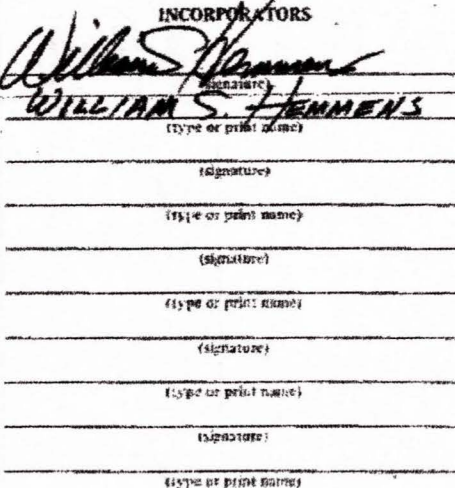 INCORPORATORS
William S. Hemmens
(signature)
WILLIAM S. HEMMENS
(type or print name)
(signature)
(type or print name)
(signature)
(type or print name)
(signature)
(type or print name)
(signature)
(type or print name)